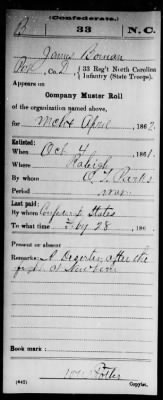 (Confederate.)
B 33 N.C.
James Boman
Pvt, Co. D, 33 Reg't North Carolina
Infantry (State Troops).
Appears on
Company Muster Roll
of the organization named above,
for Mch & April, 1862.
Enlisted:
When Oct 4, 1861.
Where Raleigh
By whom
Period war
Last paid:
By whom Confederate States
To what time Feby 28, 186
Present or absent
Remarks: A Deserter after the
at Newbern
Book mark:
(642) Copyist.